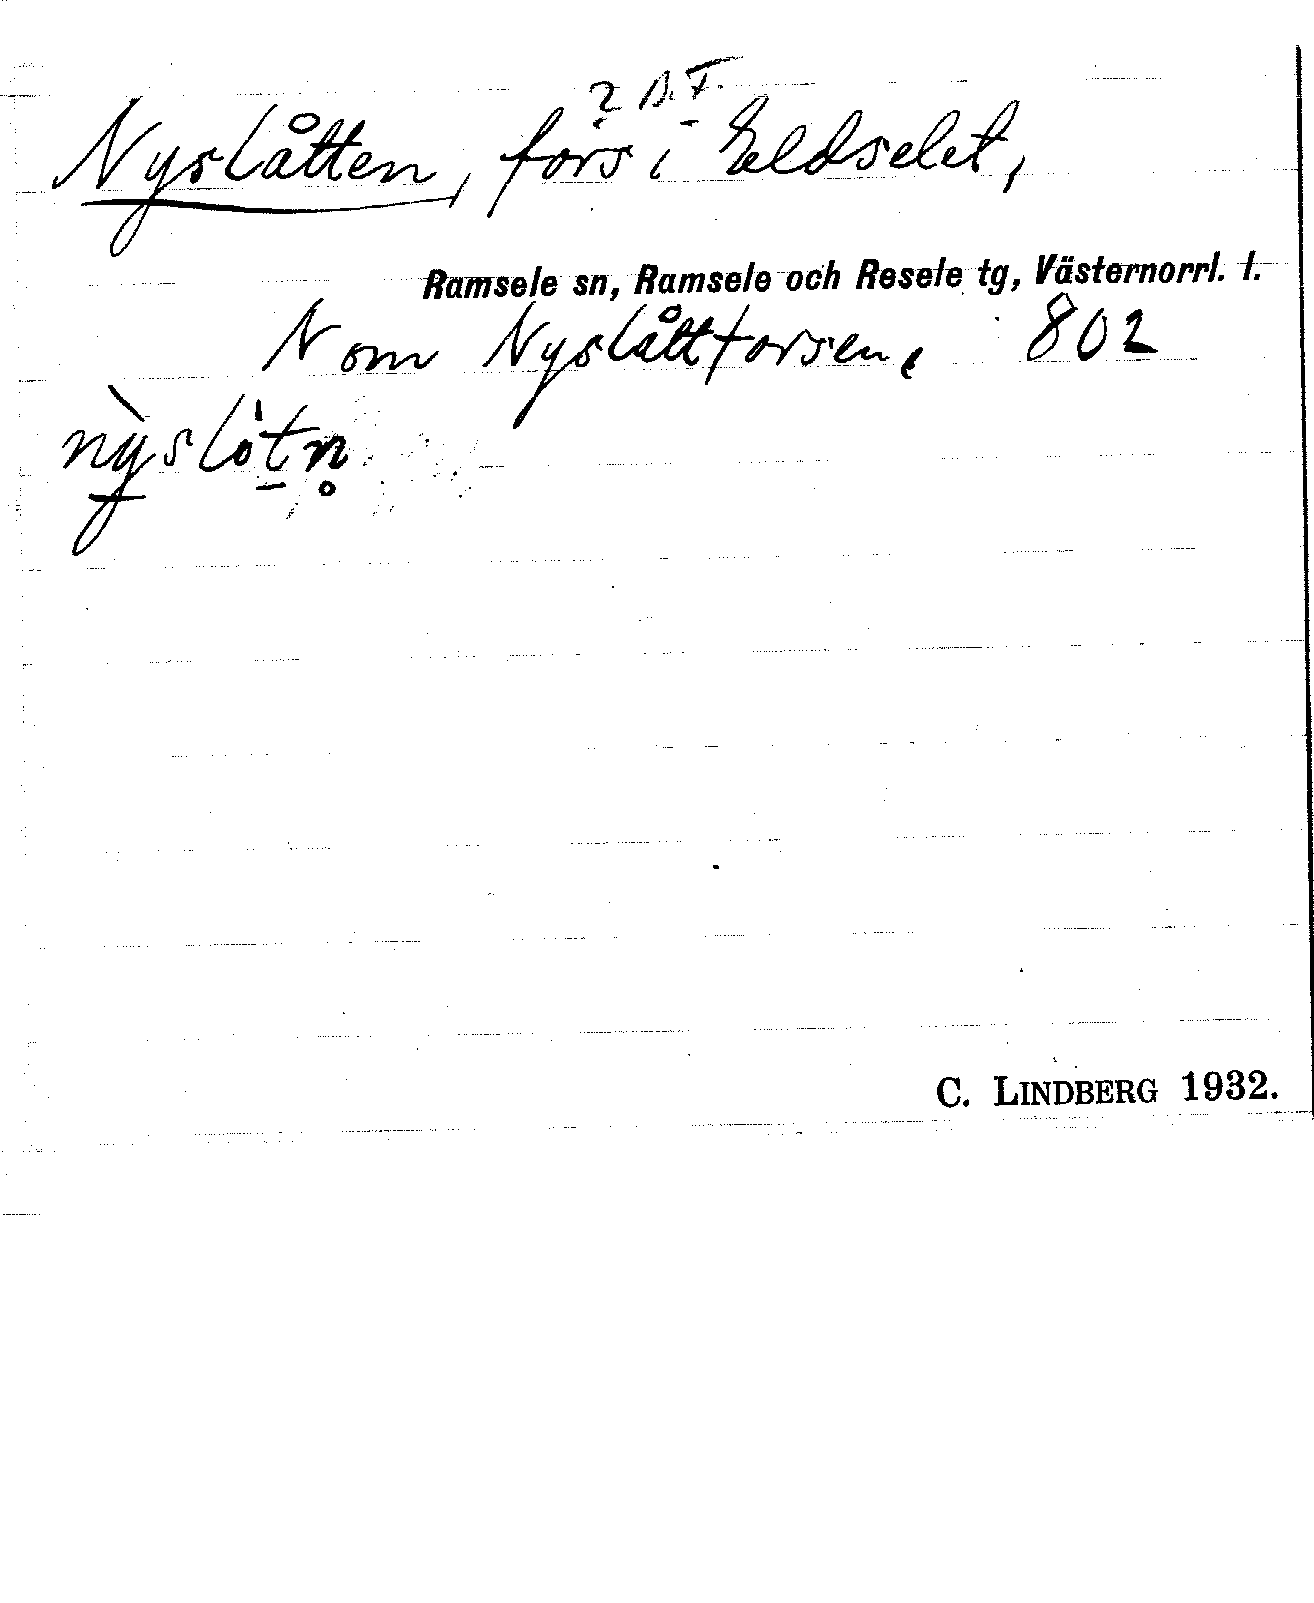 Nyslåtten, fors i Eldselet,
Ramsele sn, Ramsele och Resele tg, Västernorrl. l.
N om Nyslåttforsen, 802
nỳslòtn̥
C. LINDBERG 1932.